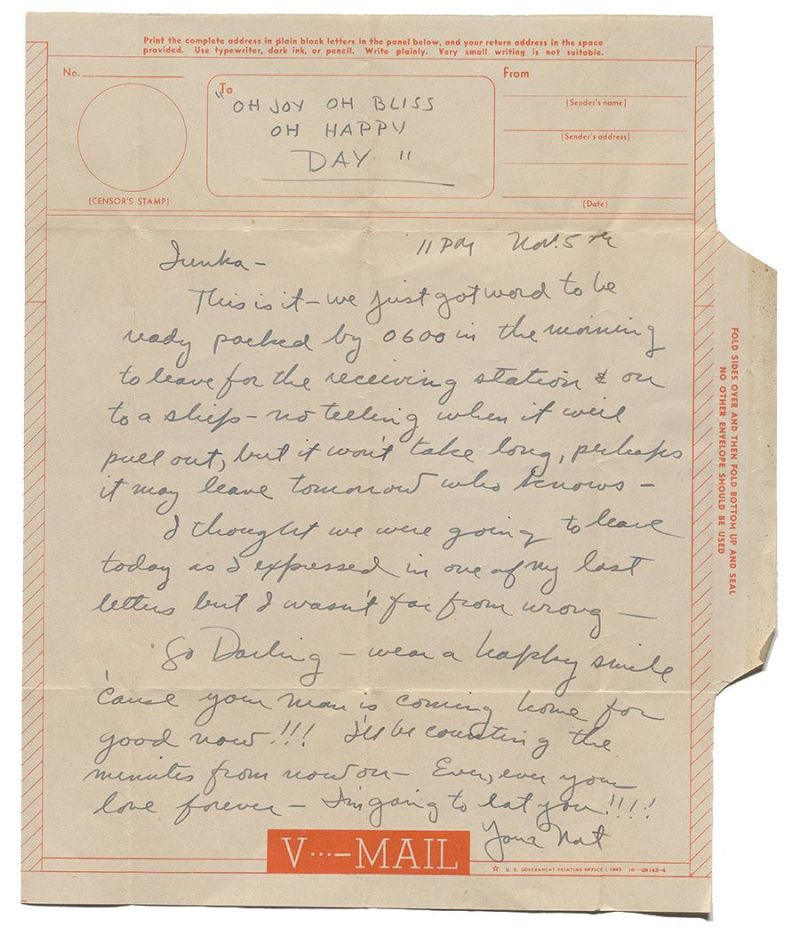 Print the complete address in plain block letters in the panel below, and your return address in the space
provided. Use typewriter, dark ink, or pencil. Write plainly. Very small writing is not suitable.
No.
To
"OH JOY OH BLISS
OH HAPPY
DAY"
From
(Sender's name)
(Sender's address)
(Date)
(CENSOR'S STAMP)
11 PM Nov. 5th
This is it – we just got word to be
ready packed by 0600 in the morning
to leave for the receiving station & on
to a ship – no telling when it will
pull out, but it won't take long, perhaps
it may leave tomorrow who knows –
I thought we were going to leave
today as I expressed in one of my last
letters but I wasn't far from wrong –
So Darling – wear a happy smile
'cause your man is coming home for
good now!!! I'll be counting the
minutes from now on – Ever, ever your
love forever – I'm going to eat you!!!!
Your Nat
V···–MAIL
☆ U. S. GOVERNMENT PRINTING OFFICE : 1943 16—28143-4
FOLD SIDES OVER AND THEN FOLD BOTTOM UP AND SEAL
NO OTHER ENVELOPE SHOULD BE USED